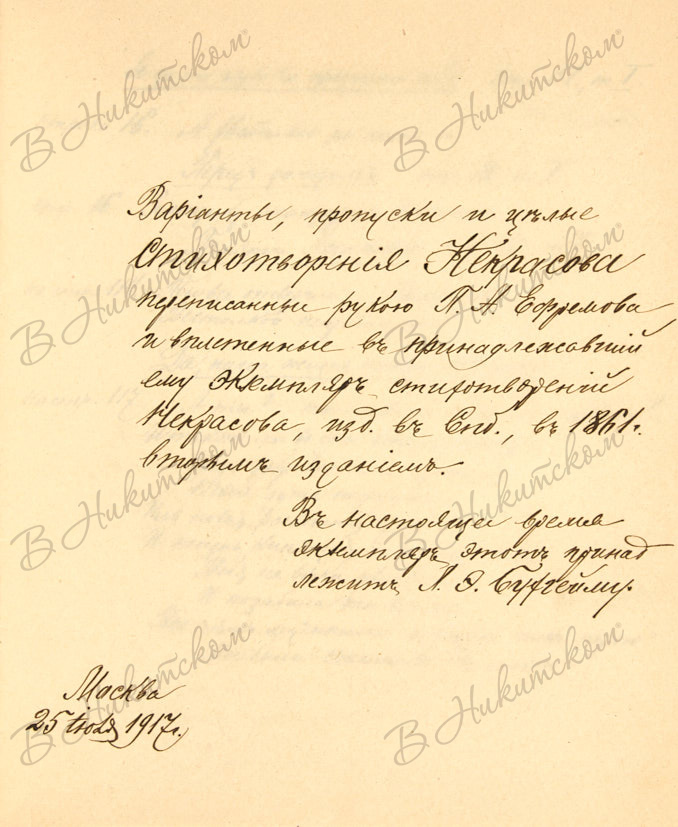 Варіанты, пропуски и цѣлые
Стихотворенія Некрасова
переписанные рукою П. А. Ефремова
и вплетенные въ принадлежавшій
ему экземпляръ стихотвореній
Некрасова, изд. въ Спб., въ 1861 г.
вторымъ изданіемъ.
Въ настоящее время
экземпляръ этотъ принад
лежитъ Л. Э. Бухгейму.
Москва
25 іюля 1917 г.
В Никитском
В Никитском
В Никитском
В Никитском
В Никитском
В Никитском
В Никитском
В Никитском